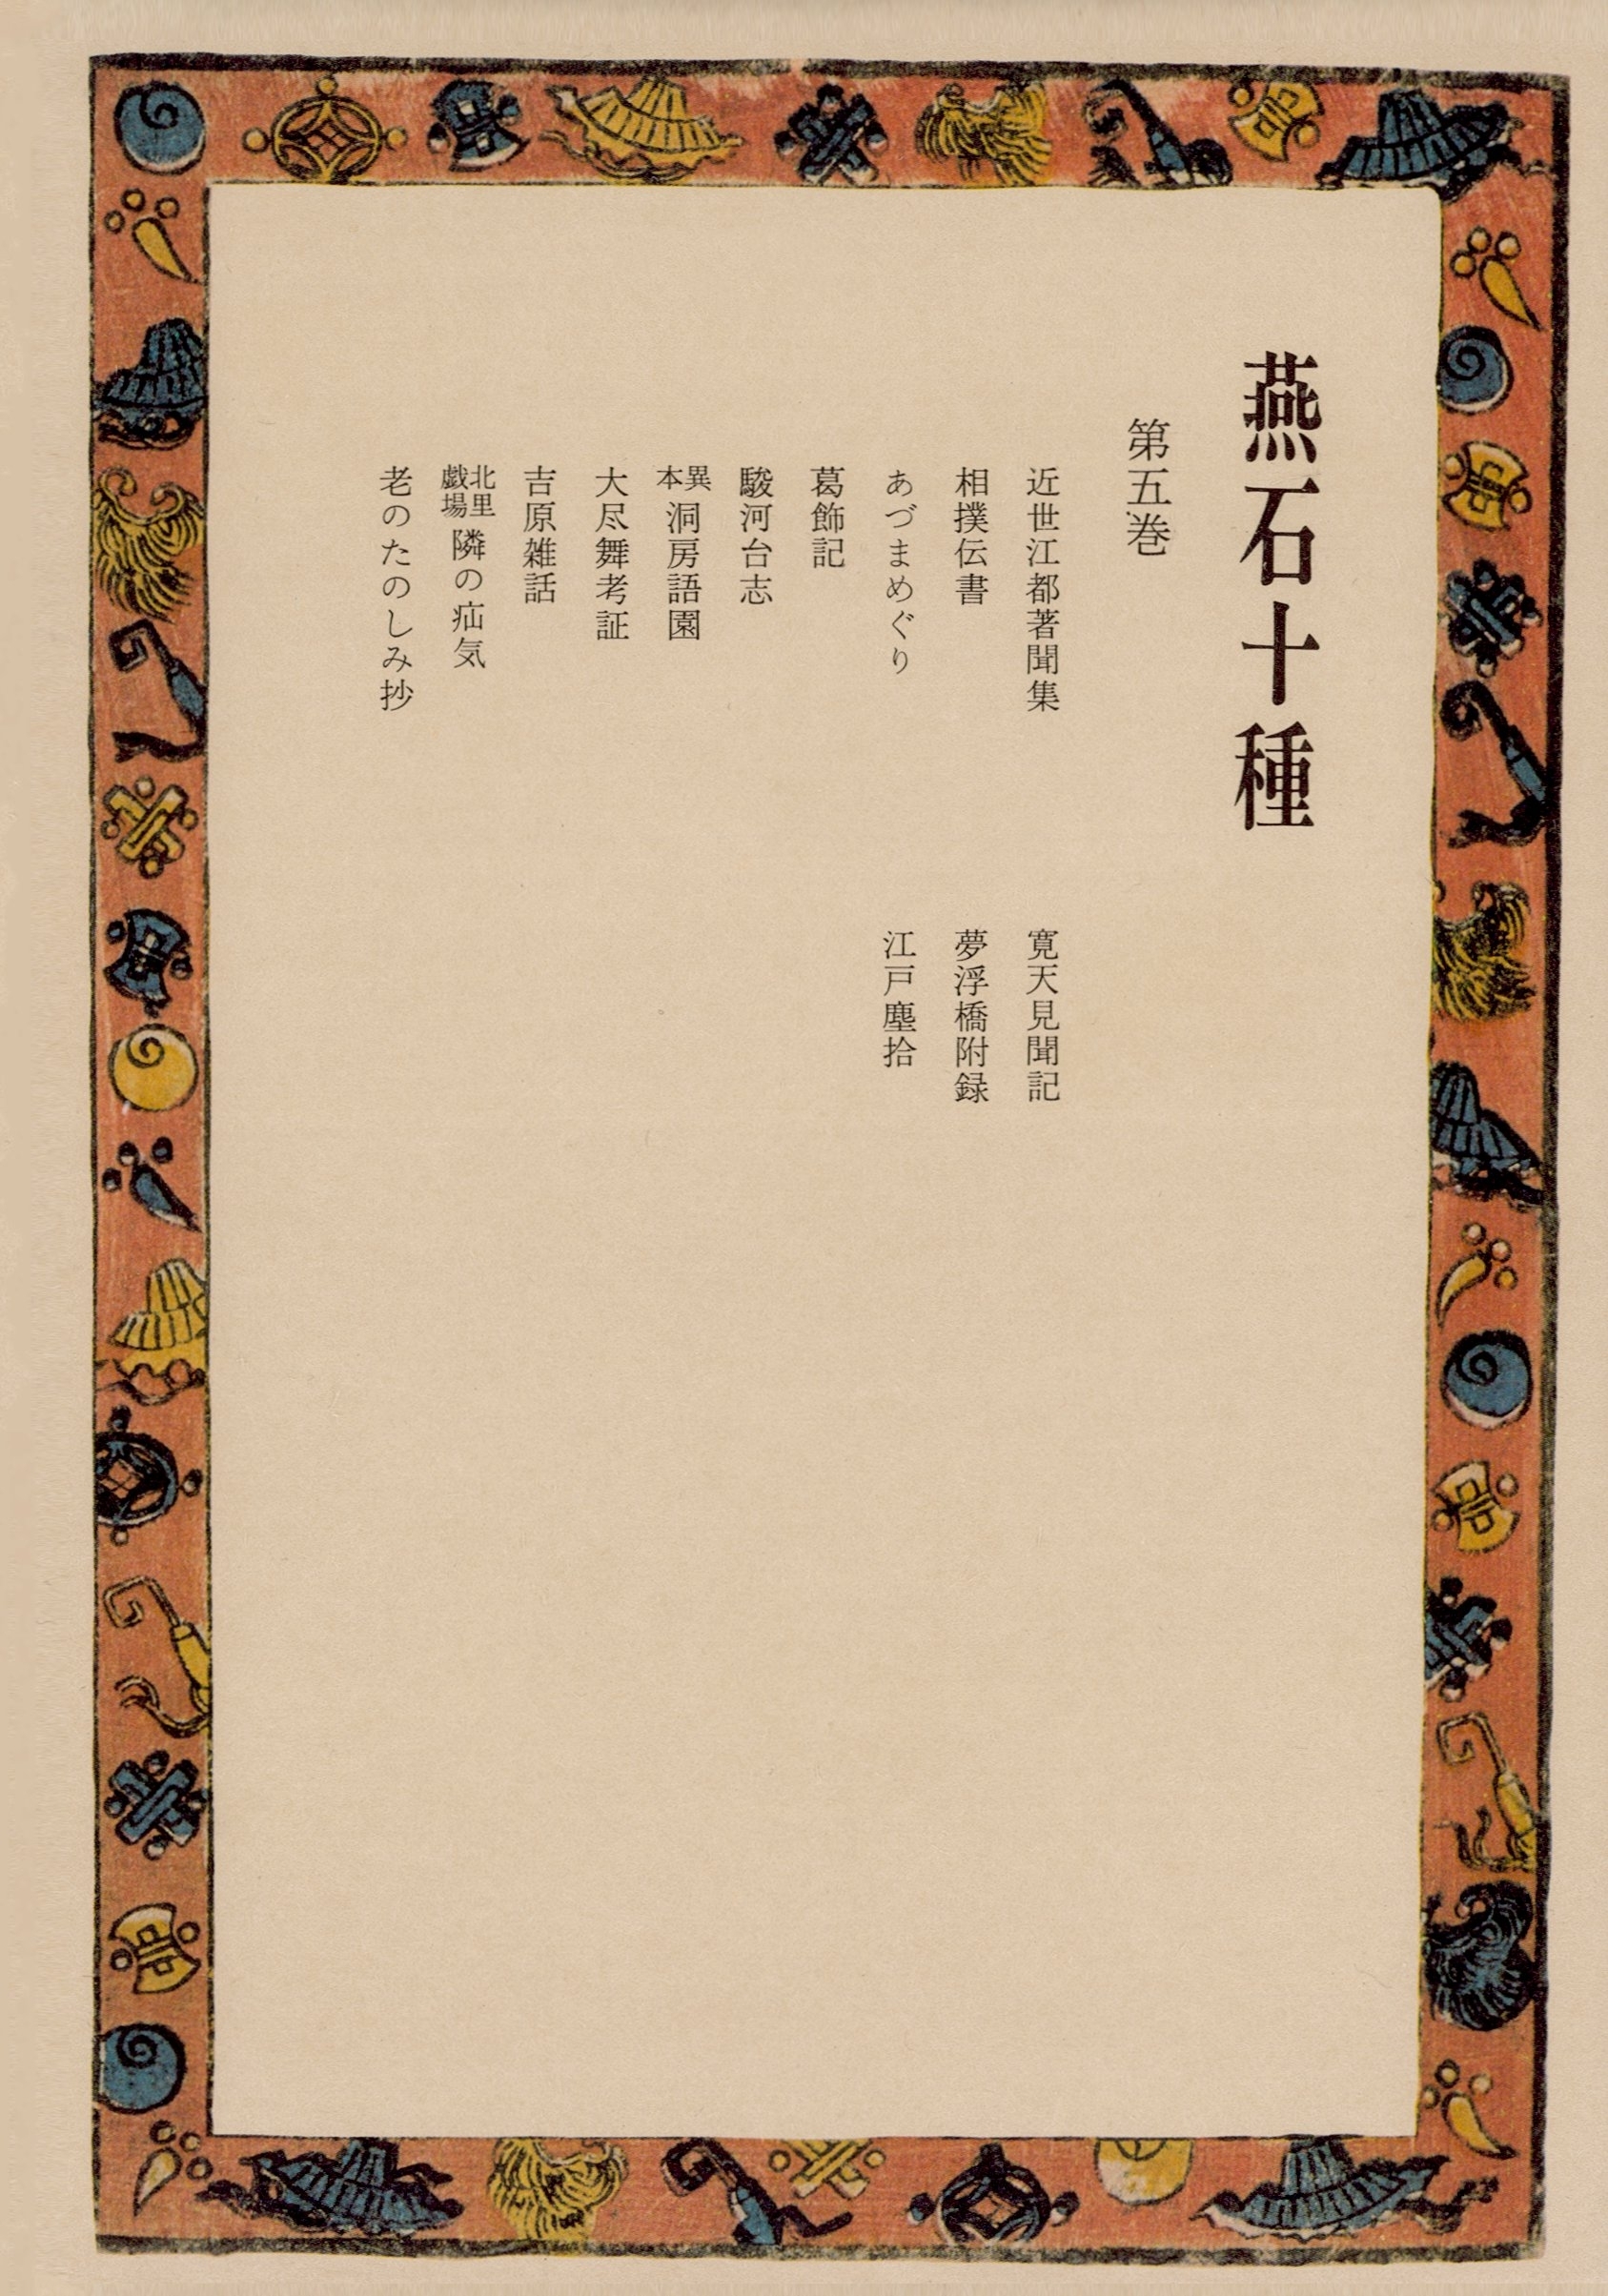 燕石十種
第五巻
近世江都著聞集
相撲伝書
あづまめぐり
葛飾記
駿河台志
異本洞房語園
大尽舞考証
吉原雑話
北里戯場隣の疝気
老のたのしみ抄
寛天見聞記
夢浮橋附録
江戸塵拾